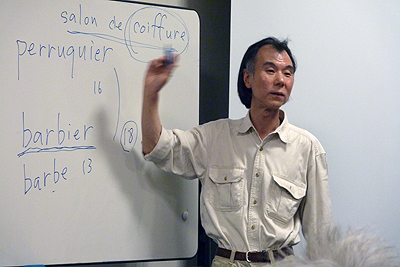 salon de coiffure
perruquier
16
barbier
18
barbe 13